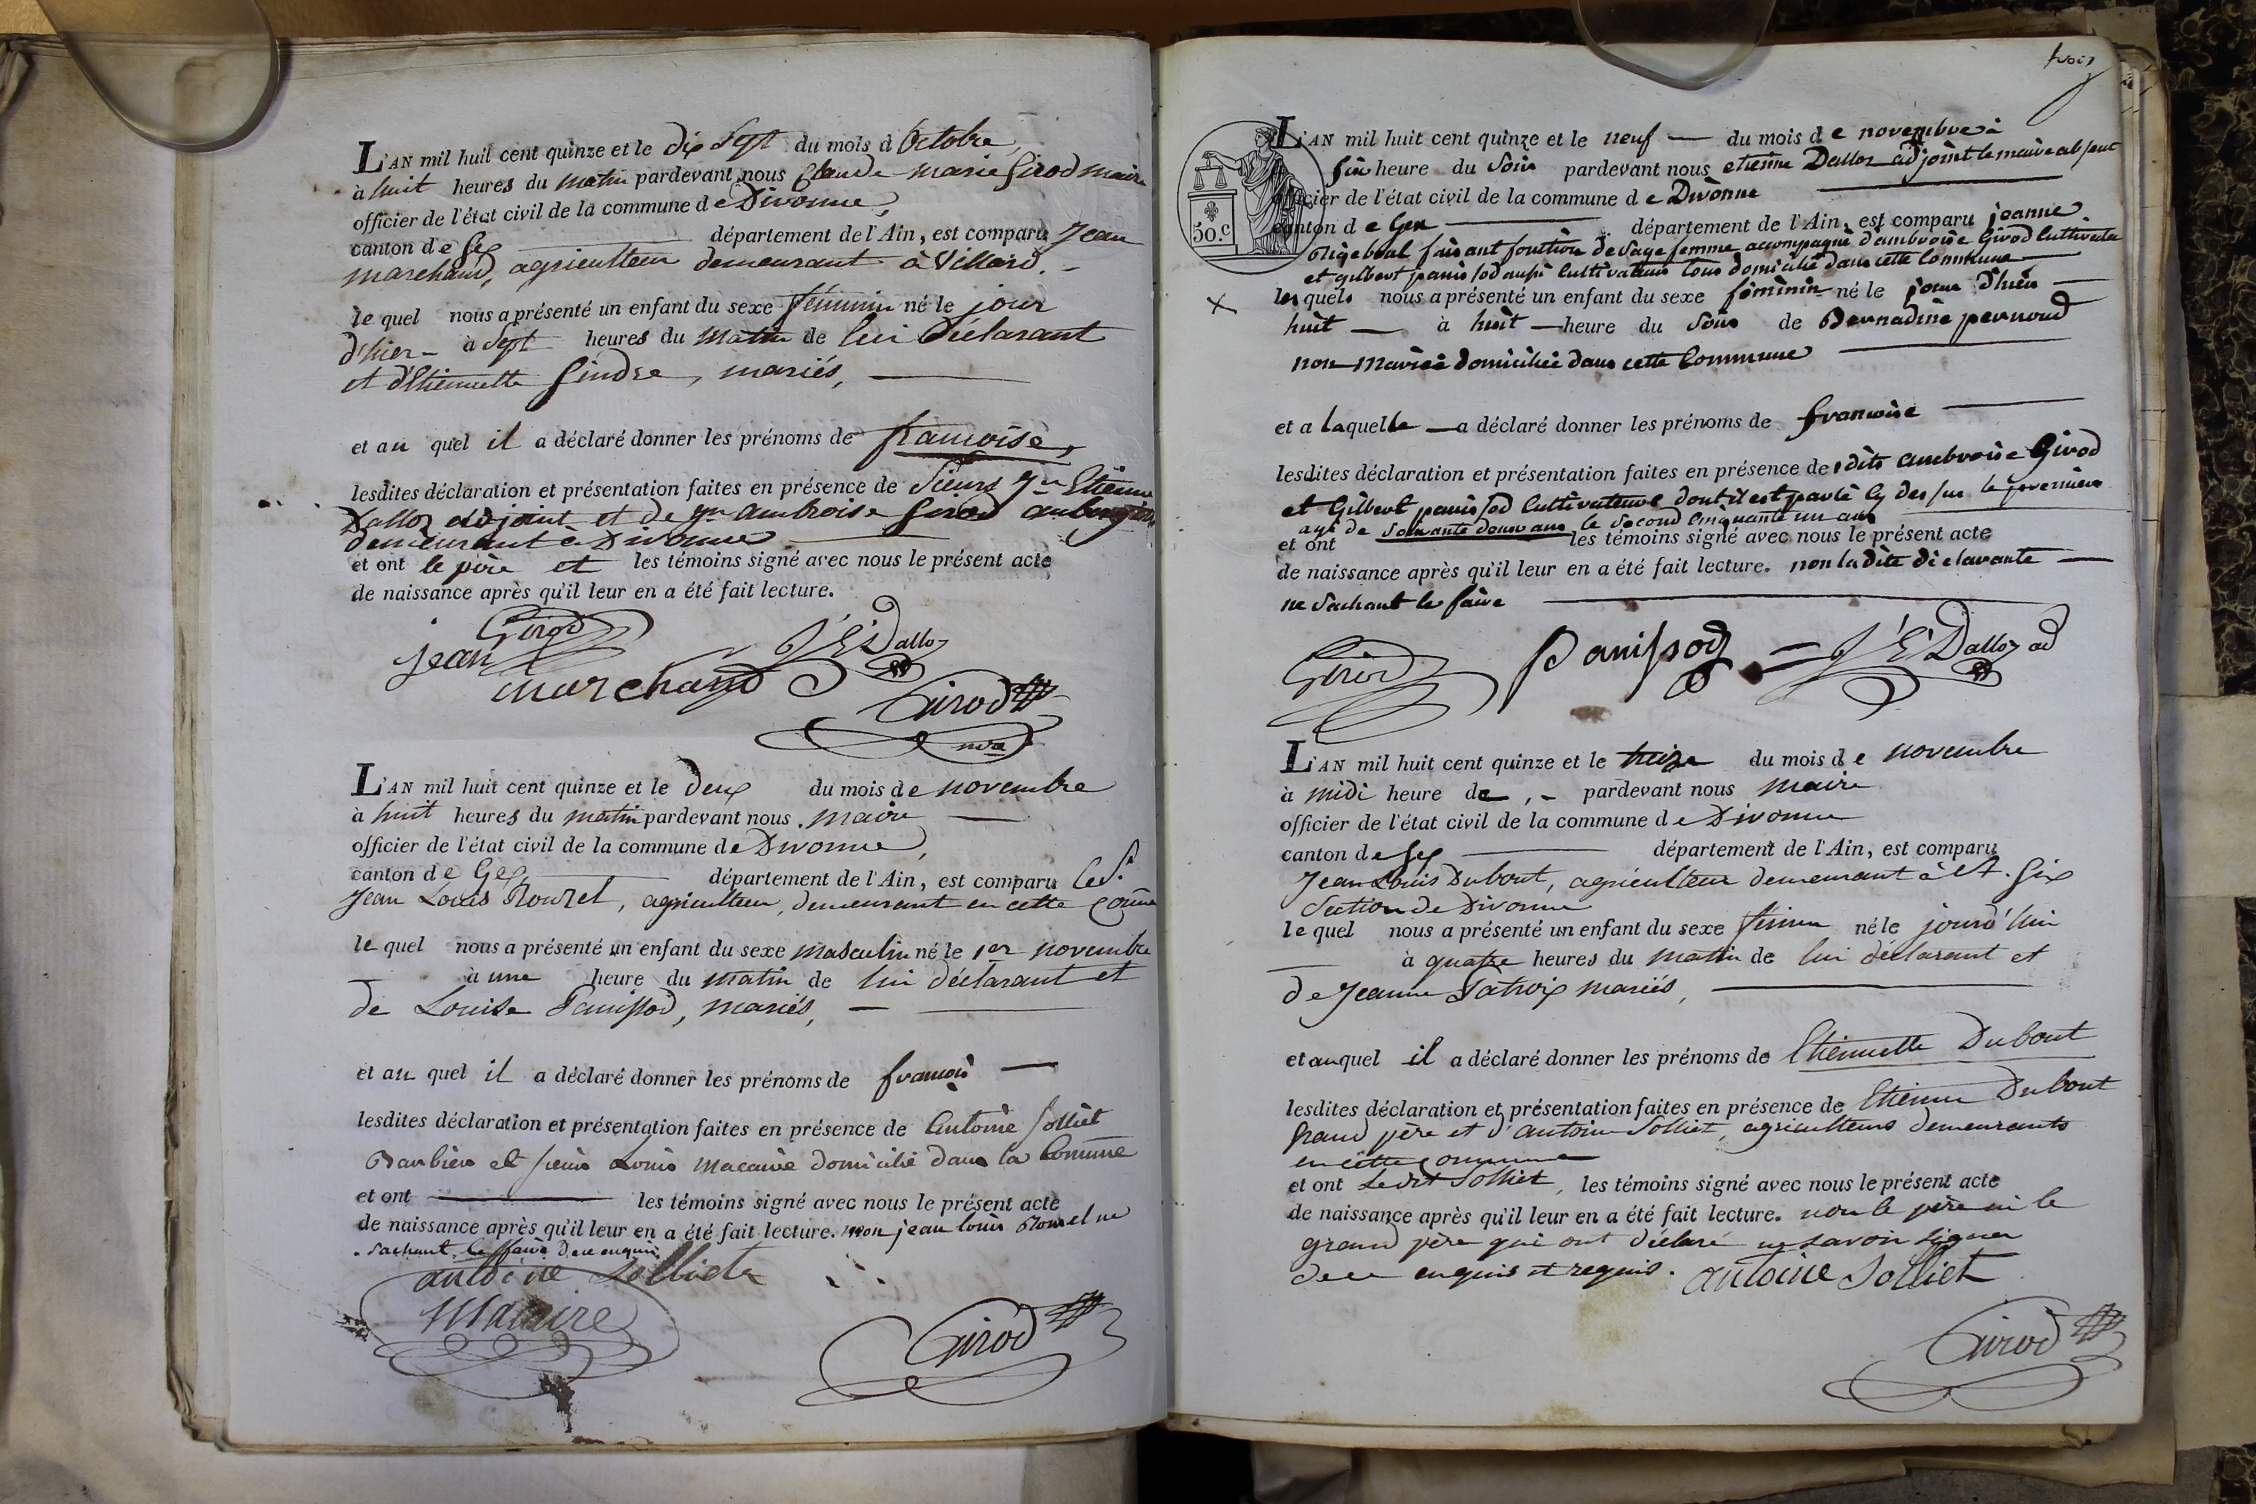 L'AN mil huit cent quinze et le dix sept du mois d'Octobre,
à huit heures du matin pardevant nous Claude Marie Girod maire
officier de l'état civil de la commune de Divonne,
canton de Gex département de l'Ain, est comparu Jean
Marchand, agriculteur demeurant à Villard.
le quel nous a présenté un enfant du sexe féminin né le jour
d'hier à sept heures du matin de lui déclarant
et d'Etiennette Gindre, mariés,
et au quel il a déclaré donner les prénoms de françoise,
lesdites déclaration et présentation faites en présence de Sieurs Jn Etienne
Dalloz adjoint et de Jn ambroise Girod
demeurant à Divonne
et ont le père et les témoins signé avec nous le présent acte
de naissance après qu'il leur en a été fait lecture.
Girod
jean marchand J E Dalloz
Girod
L'AN mil huit cent quinze et le deux du mois de novembre
à huit heures du matin pardevant nous maire
officier de l'état civil de la commune de Divonne,
canton de Gex département de l'Ain, est comparu le Sr
Jean Louis Rouzet, agriculteur, demeurant en cette Comune
le quel nous a présenté un enfant du sexe masculin né le 1er novembre
à une heure du matin de lui déclarant et
de Louise Panissod, mariés,
et au quel il a déclaré donner les prénoms de françois
lesdites déclaration et présentation faites en présence de Antoine Solliet
Barbier et Louis Macaire domicilié dans la Comune
et ont les témoins signé avec nous le présent acte
de naissance après qu'il leur en a été fait lecture. non jean louis Rouzet ne
sachant le faire de ce enquis
antoine Solliet
Macaire
Girod
trois
50. C
L'AN mil huit cent quinze et le neuf du mois de novembre à
six heure du Soir pardevant nous etienne Dalloz adjoint le maire absent
officier de l'état civil de la commune de Divonne
canton de Gex département de l'Ain, est comparu jeanne
faisant fonction de Sage femme accompagné d'ambroise Girod Cultivateur
et gilbert panissod aussi Cultivateur tous domicilié dans cette Commune
les quels nous a présenté un enfant du sexe féminin né le jour d'hier
huit à huit heure du Soir de Bernadine pernoud
non mariée domiciliée dans cette Commune
et a laquelle a déclaré donner les prénoms de francoise
lesdites déclaration et présentation faites en présence de sdits ambroise Girod
et Gilbert panissod Cultivateurs dont il est parlé cy dessus le premier
agé de Soixante douze ans le second Cinquante un ans
et ont les témoins signé avec nous le présent acte
de naissance après qu'il leur en a été fait lecture. non ladite déclarante
ne Sachant le faire
Girod Panissod J E Dalloz ad
L'AN mil huit cent quinze et le treize du mois de novembre
à midi heure de pardevant nous maire
officier de l'état civil de la commune de Divonne
canton de Gex département de l'Ain, est comparu
Jean Louis Dubout, agriculteur demeurant à St. Gix
Section de Divonne
le quel nous a présenté un enfant du sexe né le jourd'hui
à quatre heures du matin de lui déclarant et
de Jeanne Patroix mariés,
et au quel il a déclaré donner les prénoms de Etiennette Dubout
lesdites déclaration et présentation faites en présence de Etienne Dubout
grand père et d'antoine Solliet, agriculteurs demeurants
en cette commune
et ont Ledit Solliet, les témoins signé avec nous le présent acte
de naissance après qu'il leur en a été fait lecture. non le père ni le
grand père qui ont déclaré ne savoir signer
de ce enquis et requis. antoine Solliet
Girod